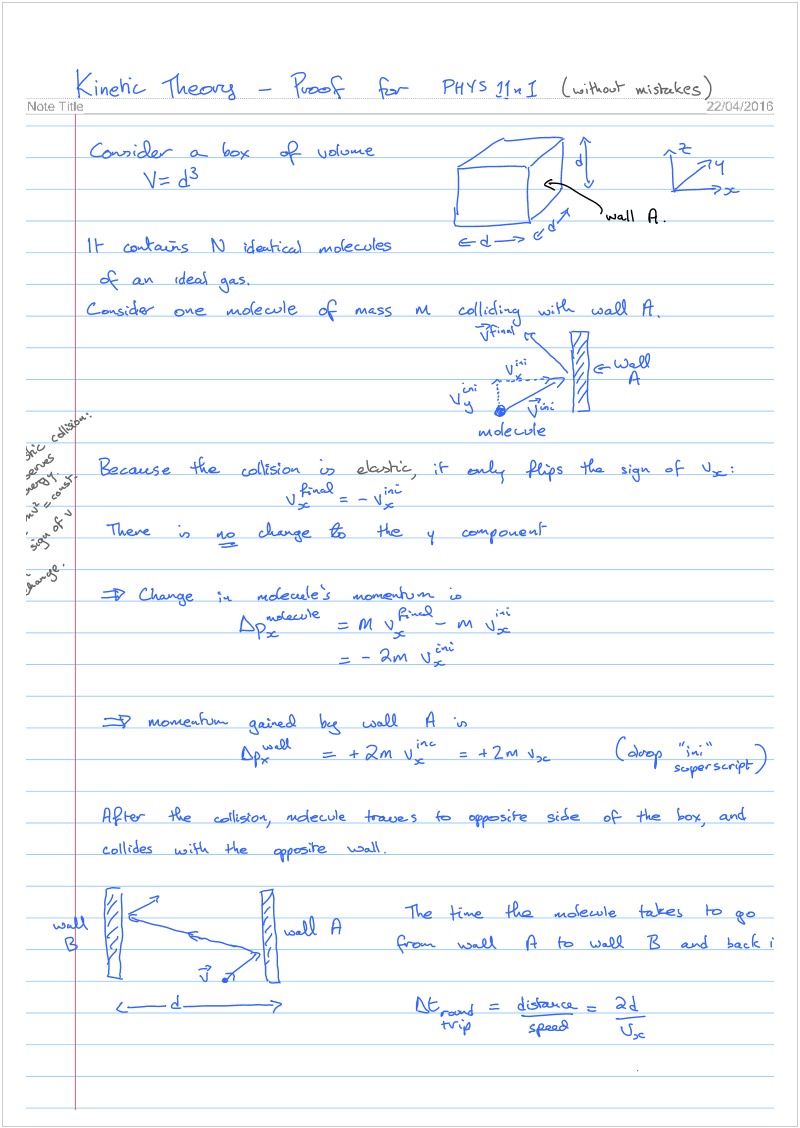 Kinetic Theory – Proof for PHYS 11n1 (without mistakes)
Note Title
22/04/2016
Consider a box of volume
V = d³
d
d
d
wall A.
z
y
x
It contains N identical molecules
of an ideal gas.
Consider one molecule of mass m colliding with wall A.
v⃗ᶠⁱⁿᵃˡ
vₓⁱⁿⁱ
v_yⁱⁿⁱ
v⃗ⁱⁿⁱ
molecule
← Wall
A
collision:
mv² = const.
sign of v
change.
Because the collision is elastic, it only flips the sign of vₓ:
vₓᶠⁱⁿᵃˡ = – vₓⁱⁿⁱ
There is no change to the y component
⇒ Change in molecule's momentum is
Δpₓᵐᵒˡᵉᶜᵘˡᵉ = m vₓᶠⁱⁿᵃˡ – m vₓⁱⁿⁱ
= – 2m vₓⁱⁿⁱ
⇒ momentum gained by wall A is
Δpₓʷᵃˡˡ = +2m vₓⁱⁿᶜ = +2m vₓ (drop "ini"
superscript)
After the collision, molecule traves to opposite side of the box, and
collides with the opposite wall.
wall
B
wall A
v⃗
d
The time the molecule takes to go
from wall A to wall B and back i
Δt round trip = distance/speed = 2d/vₓ